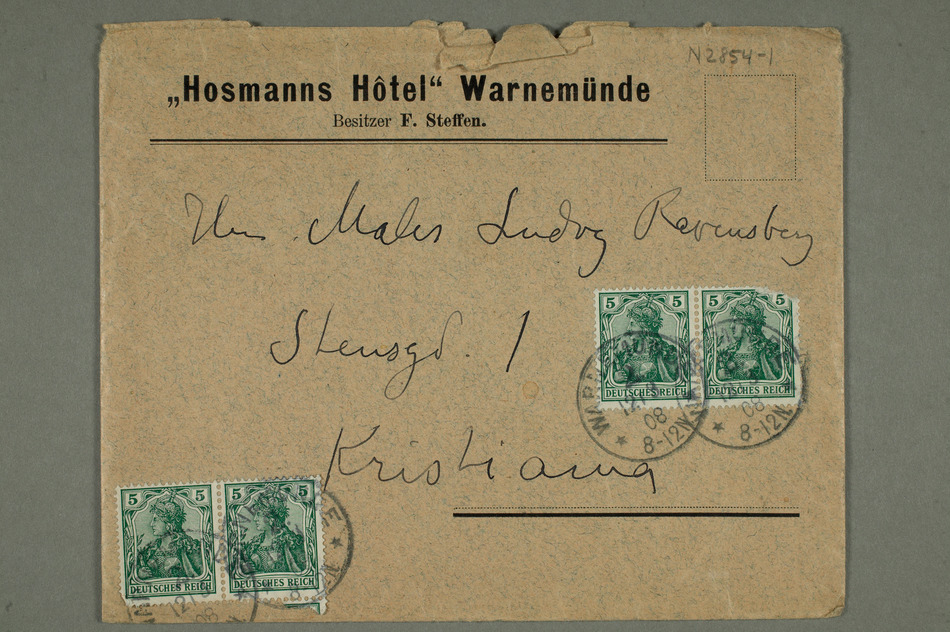 N2854-1
„Hosmanns Hôtel“ Warnemünde
Besitzer F. Steffen.
Maler Ludvig Ravensberg
Stensgd. 1
Kristiania
5 5 5 5
DEUTSCHES REICH DEUTSCHES REICH
08 08
8-12N. 8-12N.
5 5 5 5
DEUTSCHES REICH DEUTSCHES REICH
08